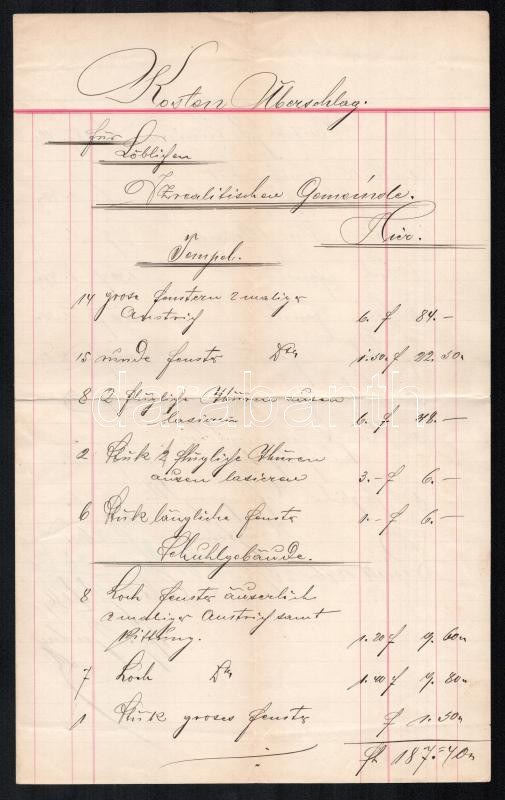 Kosten Überschlag.
für
Löblichen
Izrealitischen Gemeinde.
Hier.
Tempel.
14 grose fenstern 2 maliger
Anstrich 6. f 84.—
15 runde fenster Dto 1.50. f 22.50
8 2 flugliche Thüren ausen
lasieren 6. f 48.—
darabanth
2 Stuk 2 flugliche Thüren
ausen lasieren 3.- f 6.—
6 Stuk längliche fenster 1.- f 6.—
Schuhlgebäude.
8 Loch fenster äuserlich
2 maliger Anstrich samt
Kittung. 1.20 f 9.60
7 Loch Dto 1.40 f 9.80
1 Stuk groses fenster f 1.50
fl 187.40